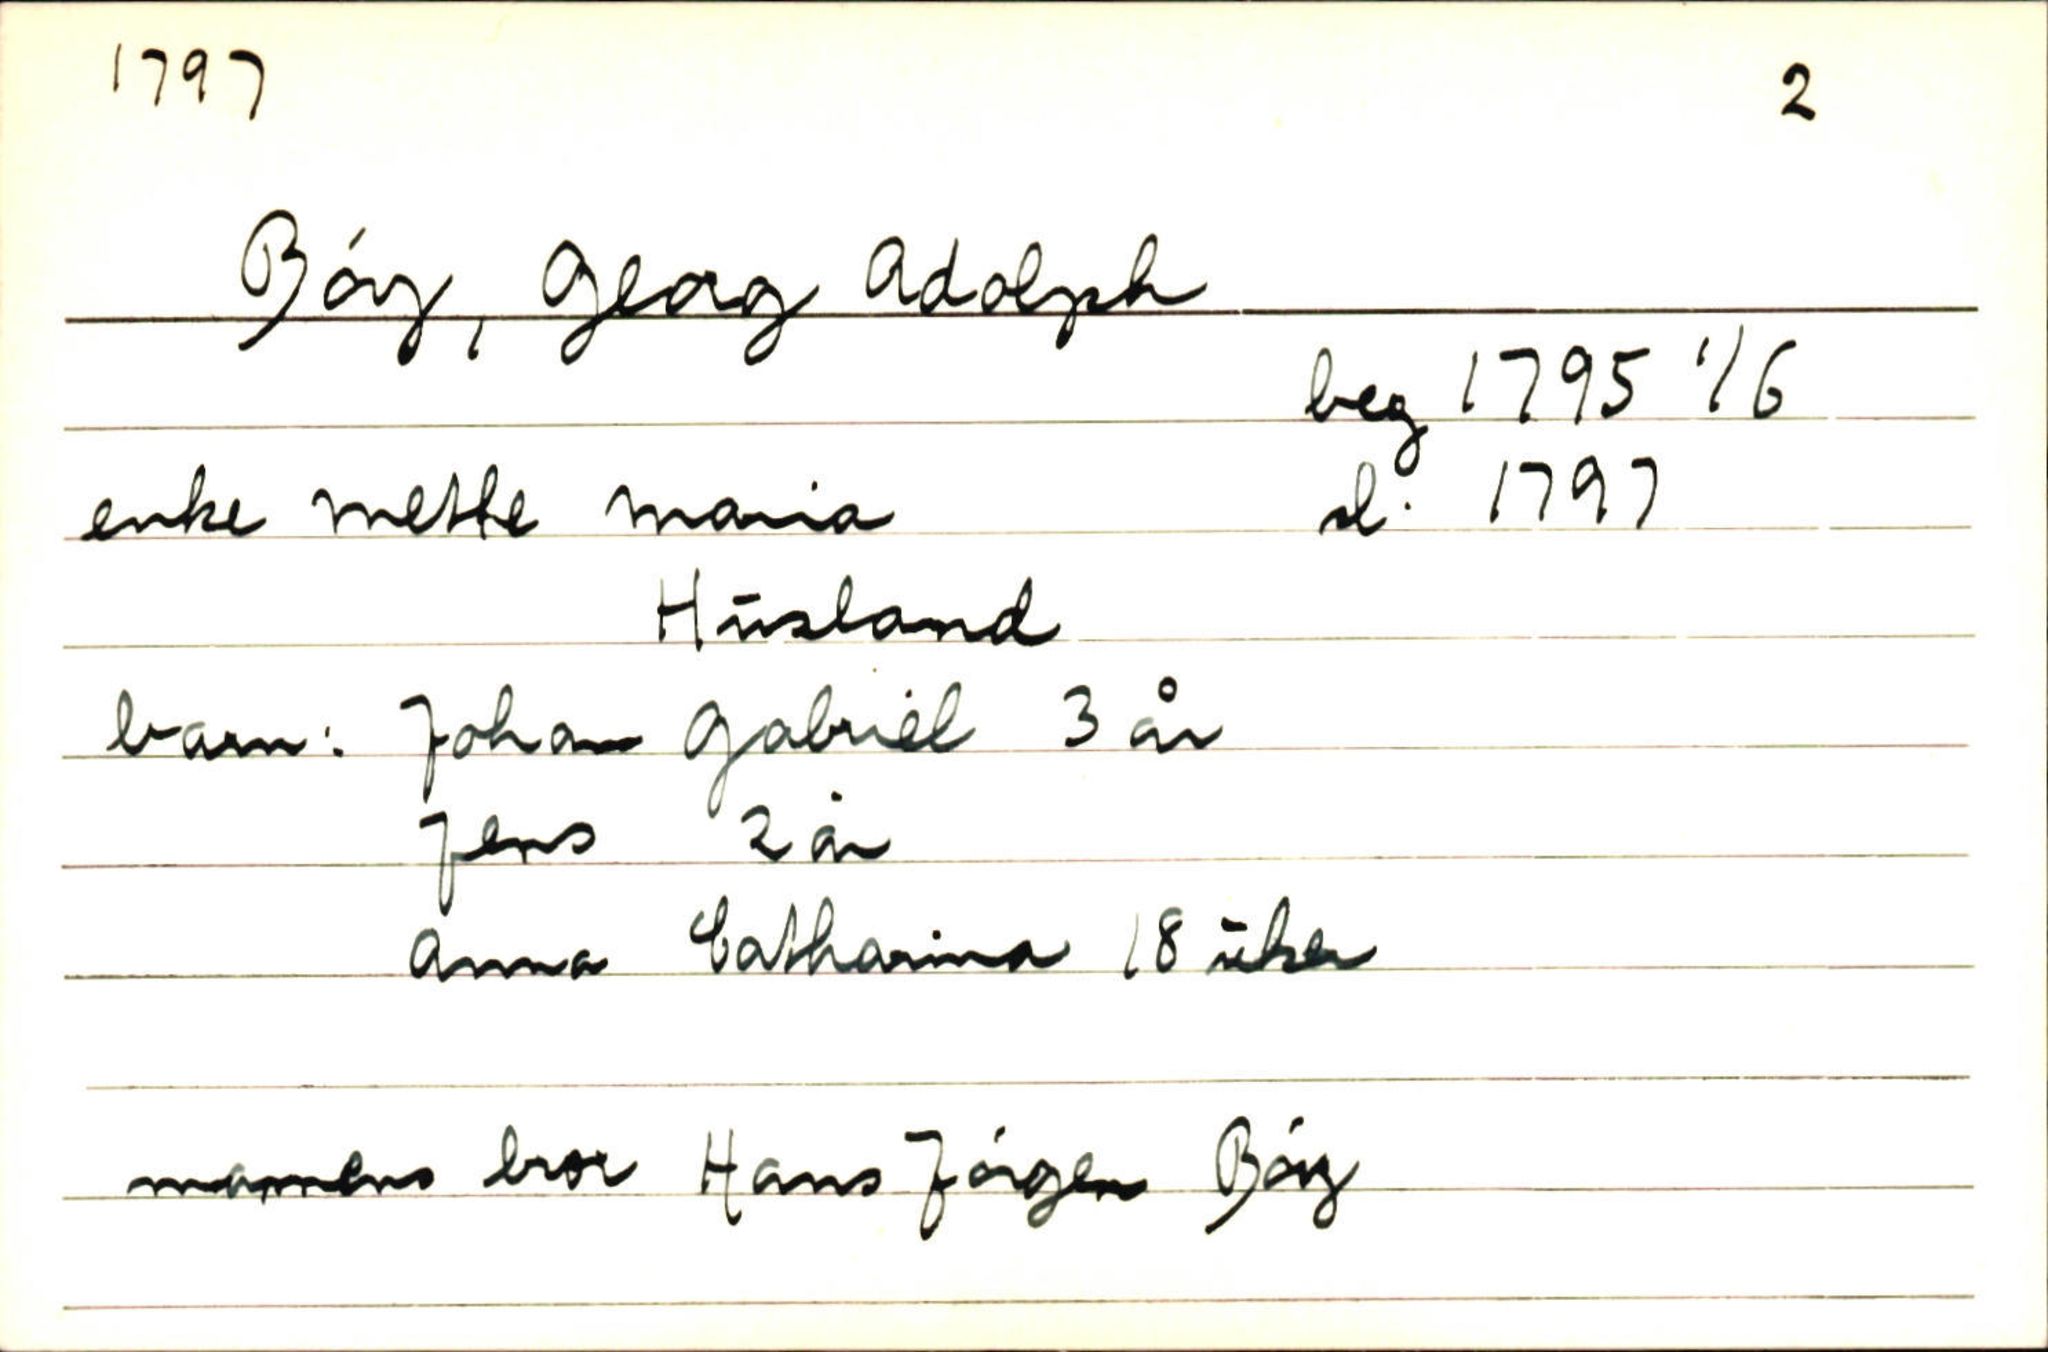 1797 2
Bóy, Georg Adolph
beg 1795 1/6
enke Mette Maria sl. 1797
Hūsland
barn: Johan Gabriel 3 år
Jens 2 år
Anna Catharina 18 ūker
mannens bror Hans Jórgen Bóy